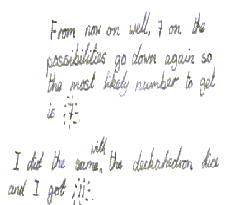 From now on well, 7 on the
possibilities go down again so
the most likely number to get
is 7
I did the same, with the deckahedron dice
and I got 11